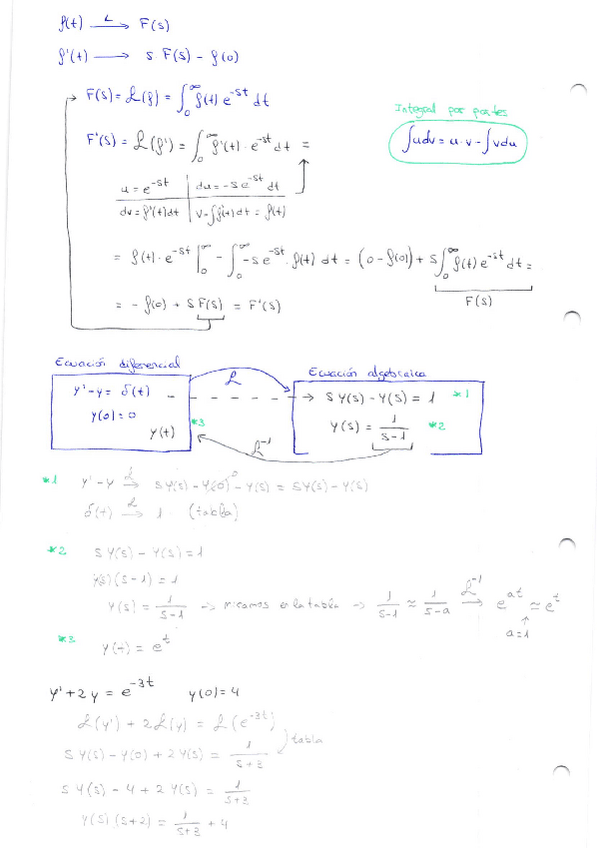 f(t) —L→ F(s)
f'(t) ⟶ s F(s) - f(0)
F(s) = L(f) = ∫₀^∞ f(t) e^(-st) dt
Integral por partes
∫udv = u·v - ∫vdu
F'(s) = L(f') = ∫₀^∞ f'(t)·e^(-st) dt =
u = e^(-st) | du = -s e^(-st) dt
dv = f'(t)dt | v = ∫f'(t)dt = f(t)
= f(t)·e^(-st) |₀^∞ - ∫₀^∞ -s e^(-st)·f(t) dt = (0 - f(0)) + s ∫₀^∞ f(t) e^(-st) dt =
F(s)
= - f(0) + s F(s) = F'(s)
Ecuación diferencial
L
Ecuación algebraica
y' - y = δ(t) - - - - → s Y(s) - Y(s) = 1 *1
y(0) = 0
*3
Y(s) = 1/(s-1) *2
y(t)
L⁻¹
*1 y' - y —L→ sY(s) - Y(0)⁰ - Y(s) = sY(s) - Y(s)
δ(t) —L→ 1 (tabla)
*2 s Y(s) - Y(s) = 1
Y(s)(s-1) = 1
Y(s) = 1/(s-1) → miramos en la tabla → 1/(s-1) ≈ 1/(s-a) —L⁻¹→ e^(at) ≃ e^t
a=1
*3 y(t) = e^t
y' + 2y = e^(-3t) y(0) = 4
L(y') + 2L(y) = L(e^(-3t))
tabla
s Y(s) - Y(0) + 2 Y(s) = 1/(s+3)
s Y(s) - 4 + 2 Y(s) = 1/(s+3)
Y(s) (s+2) = 1/(s+3) + 4